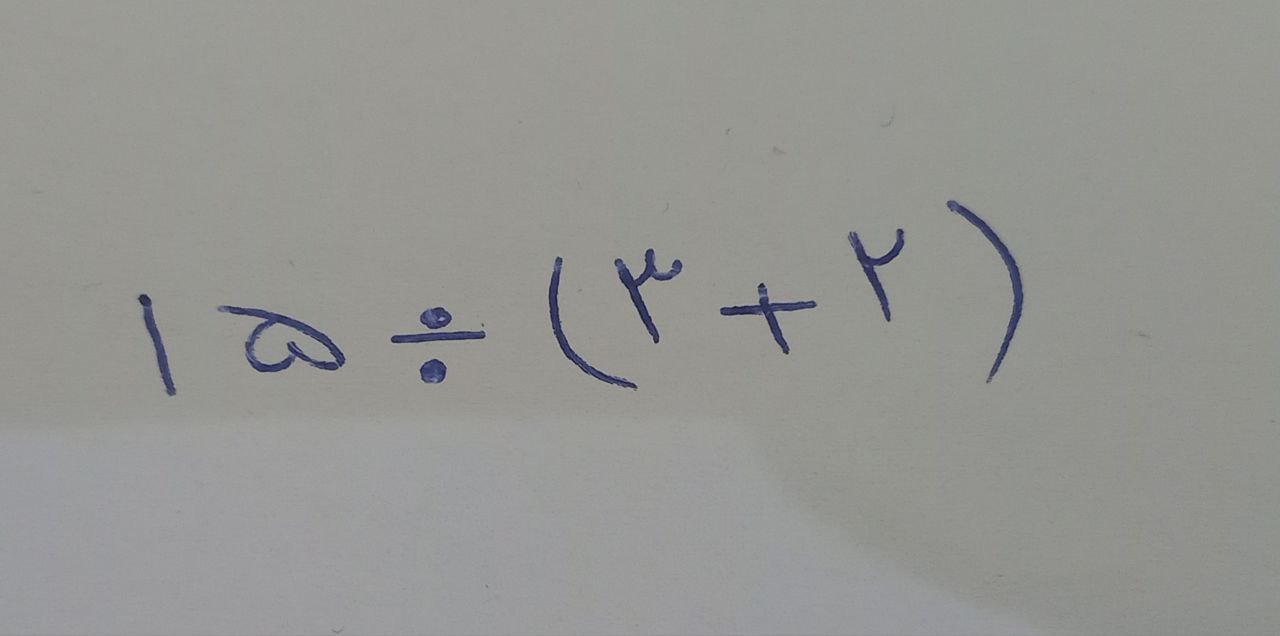 ۱۵ ÷ (۳ + ۲)